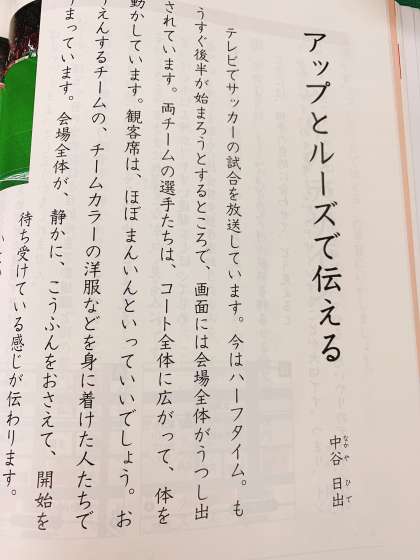 アップとルーズで伝える
中谷 日出
なかや ひで
テレビでサッカーの試合を放送しています。今はハーフタイム。も
うすぐ後半が始まろうとするところで、画面には会場全体がうつし出
されています。両チームの選手たちは、コート全体に広がって、体を
動かしています。観客席は、ほぼまんいんといっていいでしょう。お
うえんするチームの、チームカラーの洋服などを身に着けた人たちで
まっています。会場全体が、静かに、こうふんをおさえて、開始を
待ち受けている感じが伝わります。